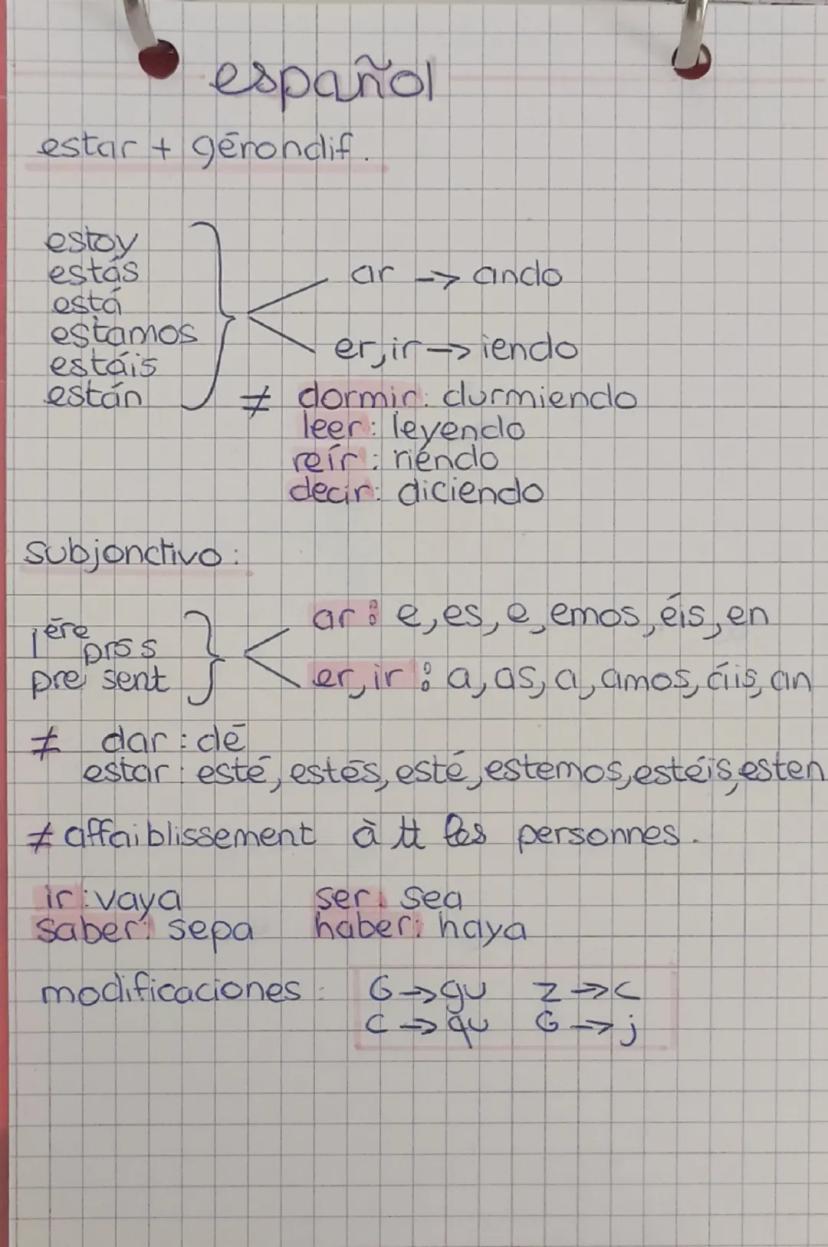 español
estar + gérondif.
estoy
estás
está
estamos
estáis
están
ar → ando
er, ir → iendo
≠ dormir: durmiendo
leer: leyendo
reír: riendo
decir: diciendo
subjonctivo:
1ère pros
present
ar: e, es, e, emos, éis, en
er, ir: a, as, a, amos, áis, an
≠ dar: dé
estar: esté, estés, esté, estemos, estéis, esten
≠ affaiblissement à tt les personnes.
ir: vaya ser: sea
saber: sepa haber: haya
modificaciones: G → gu Z → c
C → qu G → j